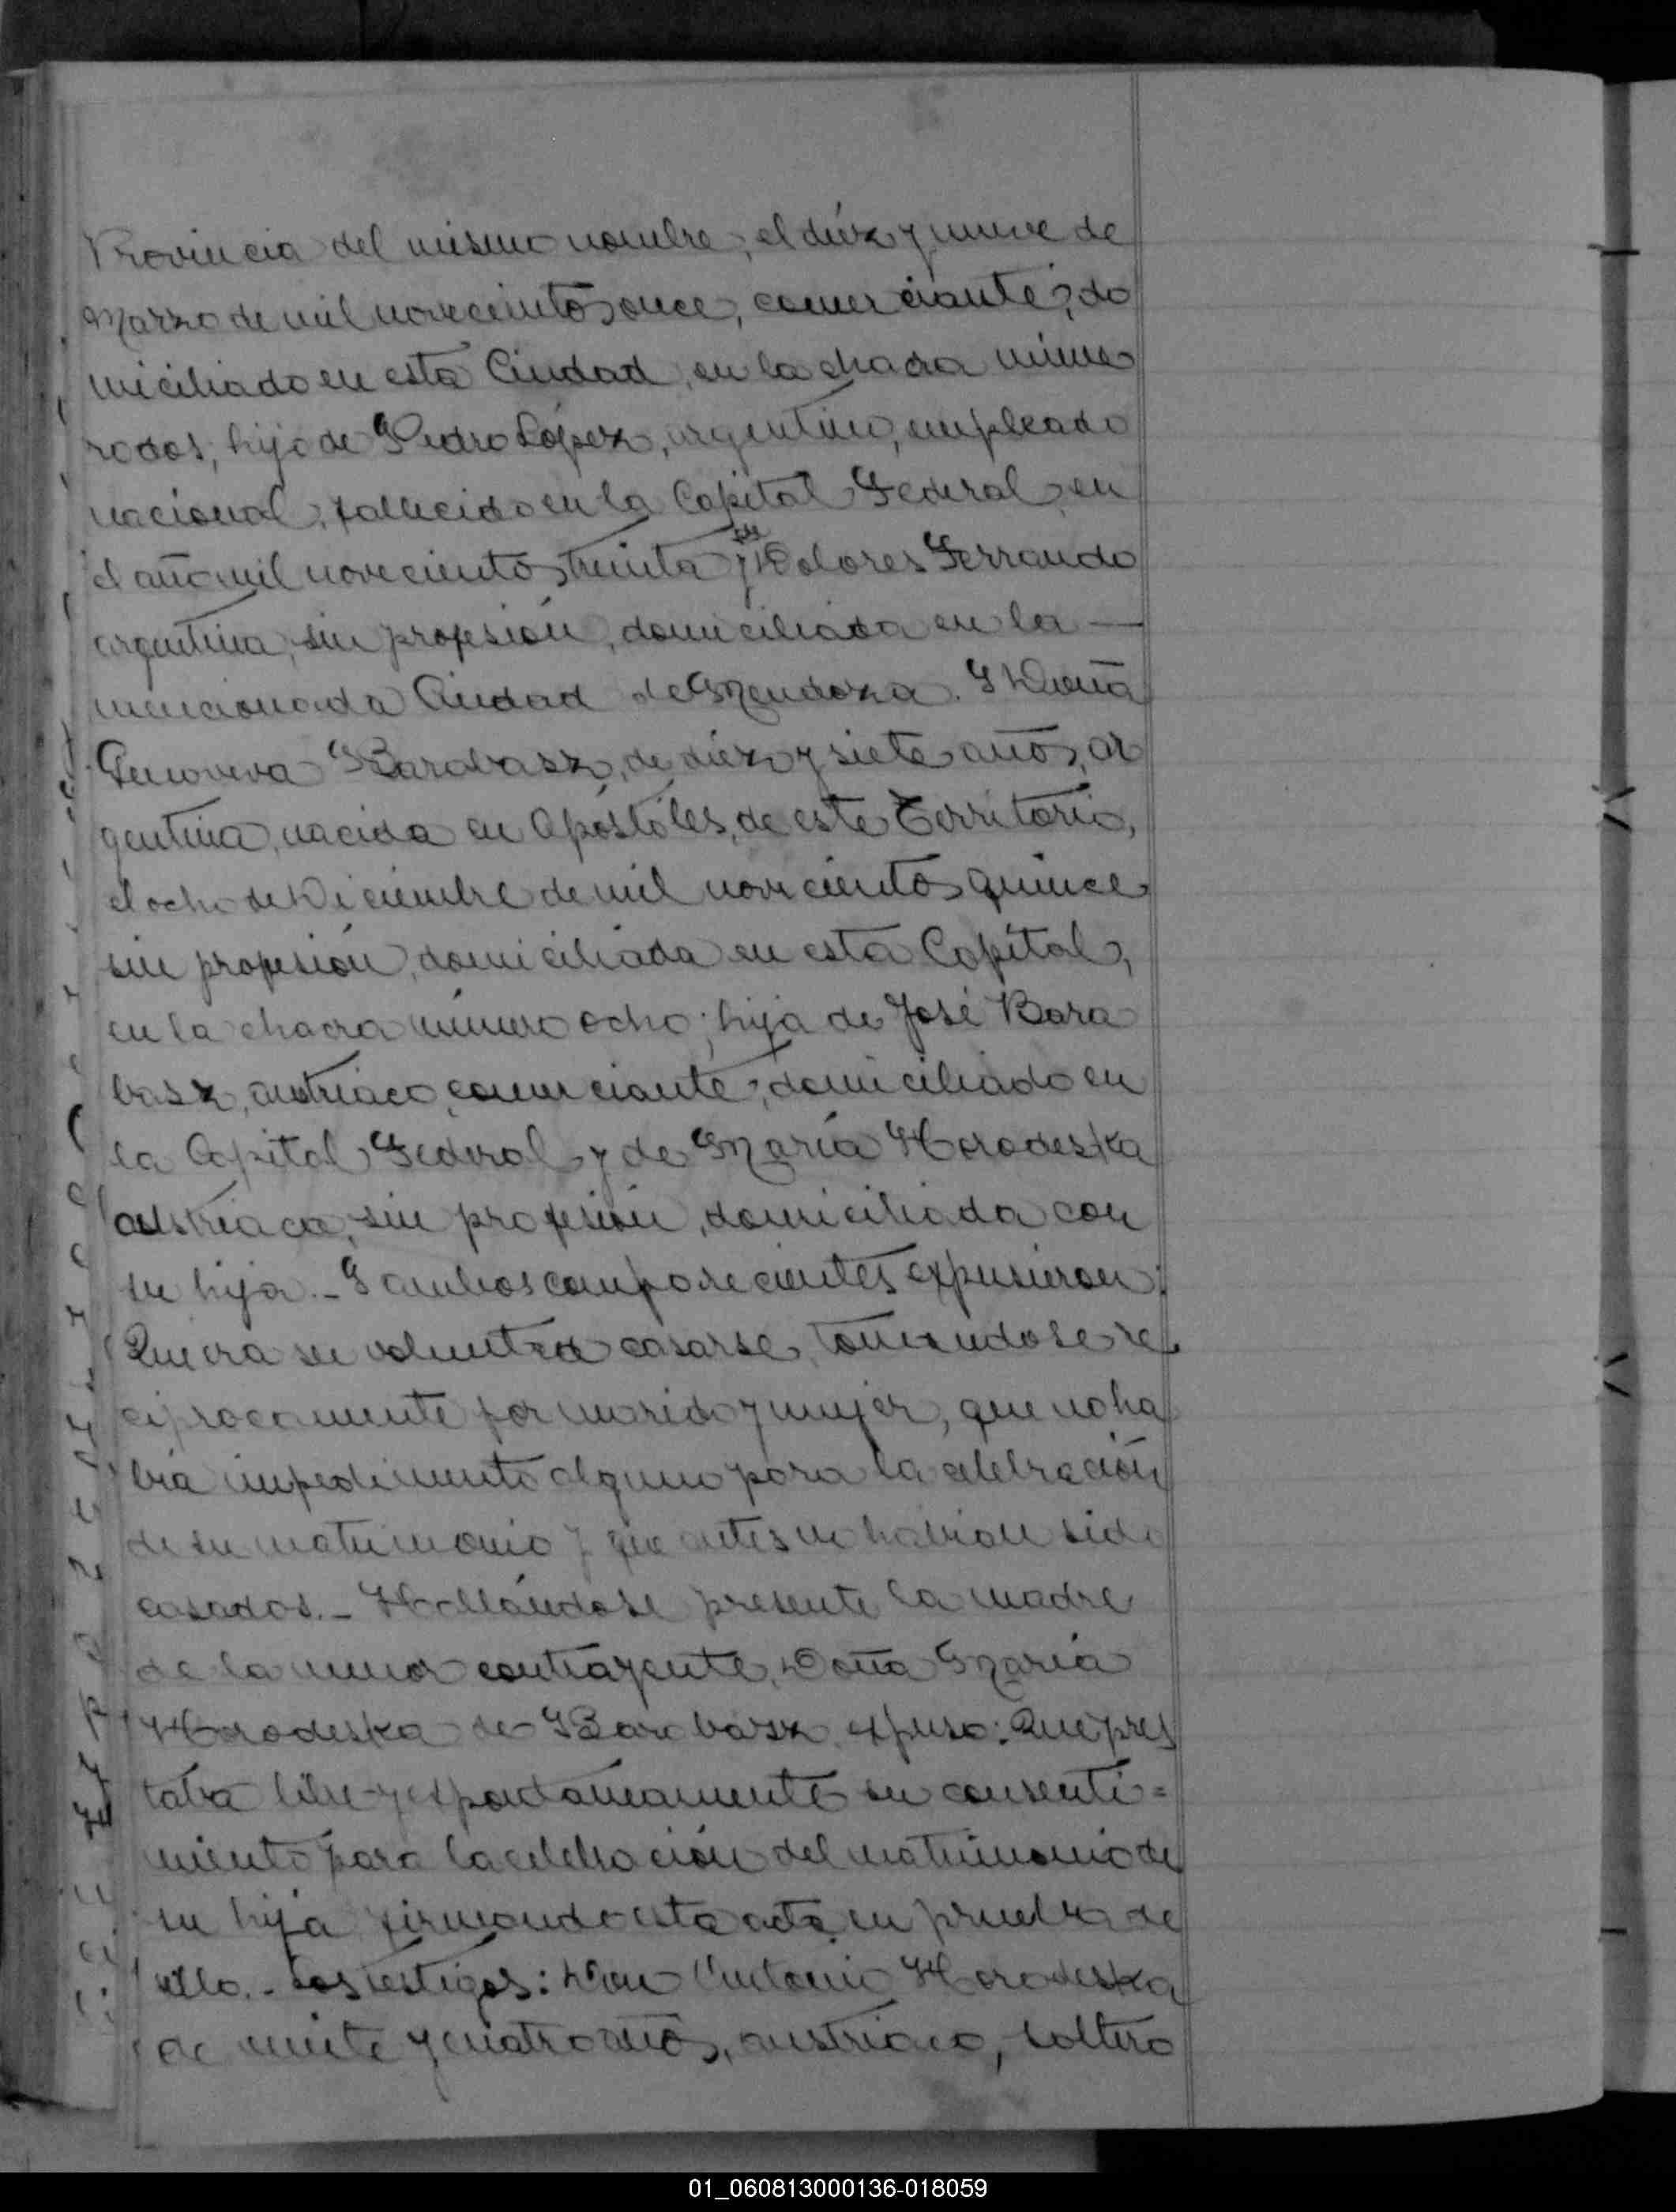 Provincia del mismo nombre, el diéz y nueve de
Marzo de mil novecientos once, comerciante, do
miciliado en esta Ciudad, en la chacra núme
ro dos, hijo de Pedro López, argentino, empleado
nacional, fallecido en la Capital Federal, en
el año mil novecientos treinta y de Dolores Ferrando
argentina, sin profesión, domiciliada en la —
mencionada Ciudad de Mendoza. Y Doña
Genoveva Barabasz, de diéz y siete años, ar
gentina, nacida en Apóstoles, de este Territorio,
el ocho de Diciembre de mil novecientos quince
sin profesión, domiciliada en esta Capital,
en la chacra número ocho; hija de José Bara
basz, austriaco, comerciante, domiciliado en
la Capital Federal y de María Horodeska
austriaca, sin profesión, domiciliada con
su hija.- Y ambos comparecientes expusieron:
Que era su voluntad casarse, tomandose re
ciprocamente por marido y mujer, que no ha
bía impedimento alguno para la celebración
de su matrimonio y que antes no habian sido
casados.- Hallándose presente la madre
de la menor contrayente, Doña María
Horodeska de Barabasz, expuso: Que pres
taba libre y espontáneamente su consenti=
miento para la celebración del matrimonio de
su hija firmando esta acta en prueba de
ello.- Los testigos: Don Antonio Horodeska
de veinte y cuatro años, austriaco, soltero
01_060813000136-018059